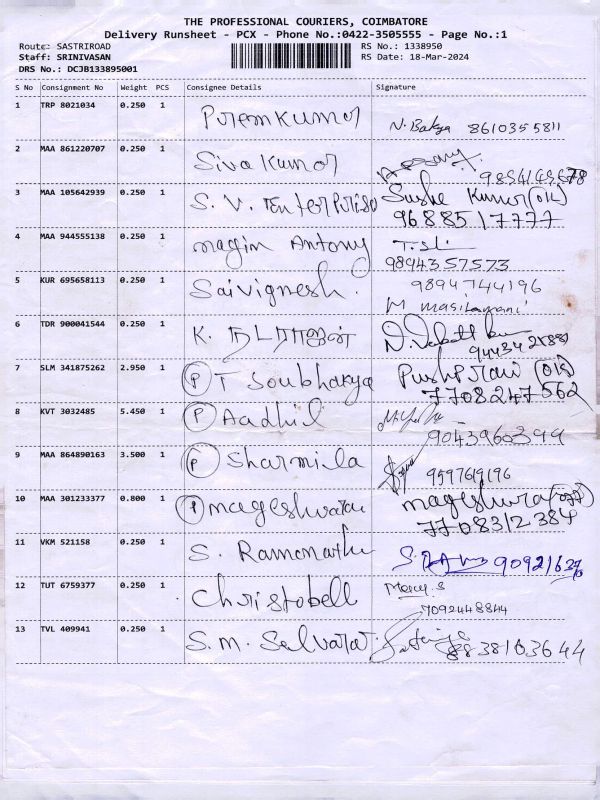 THE PROFESSIONAL COURIERS, COIMBATORE
Delivery Runsheet - PCX - Phone No.:0422-3505555 - Page No.:1
Route: SASTRIROAD
RS No.: 1338950
Staff: SRINIVASAN
RS Date: 18-Mar-2024
DRS No.: DCJB133895001
S No Consignment No Weight PCS Consignee Details Signature
1 TRP 8021034 0.250 1 Premkumar N. Bakya 8610355811
2 MAA 861220707 0.250 1 Siva Kumar
3 MAA 105642939 0.250 1 S. V. Enterprise Sushe Kumar (OK)
9688517777
4 MAA 944555138 0.250 1 magin Antony
9894357573
5 KUR 695658113 0.250 1 Saivignesh. 9894744196
M masilamani
6 TDR 900041544 0.250 1 K. நடராஜன்
7 SLM 341875262 2.950 1 (P) T Soubhakya Pushparani
7708247562
8 KVT 3032485 5.450 1 (P) Aadhil
9043960399
9 MAA 864890163 3.500 1 (P) Sharmila 9597619196
10 MAA 301233377 0.800 1 (P) mageshwaran
7708312384
11 VKM 521158 0.250 1 S. Ramanathan
12 TUT 6759377 0.250 1 Christobell Mercy. S
7092448844
13 TVL 409941 0.250 1 S. m. Selvaraj 8838103644